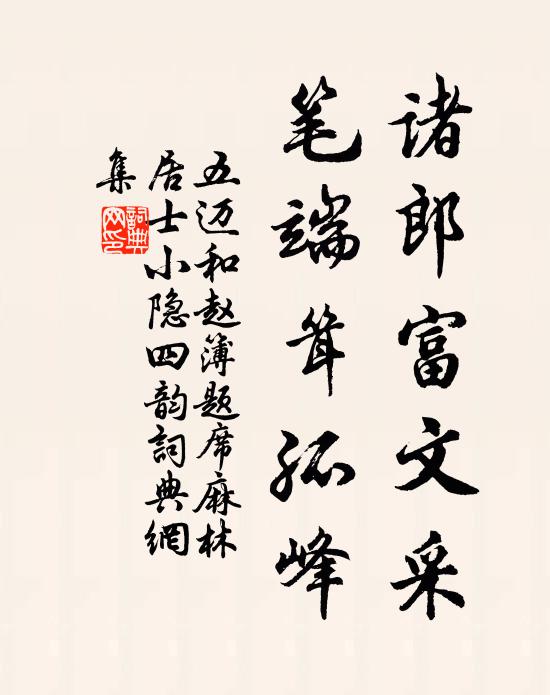 诸郎富文采
笔端耸孤峰
五迈和赵簿题席麻林
居士小隐四韵詞典網
集
詞典
网印